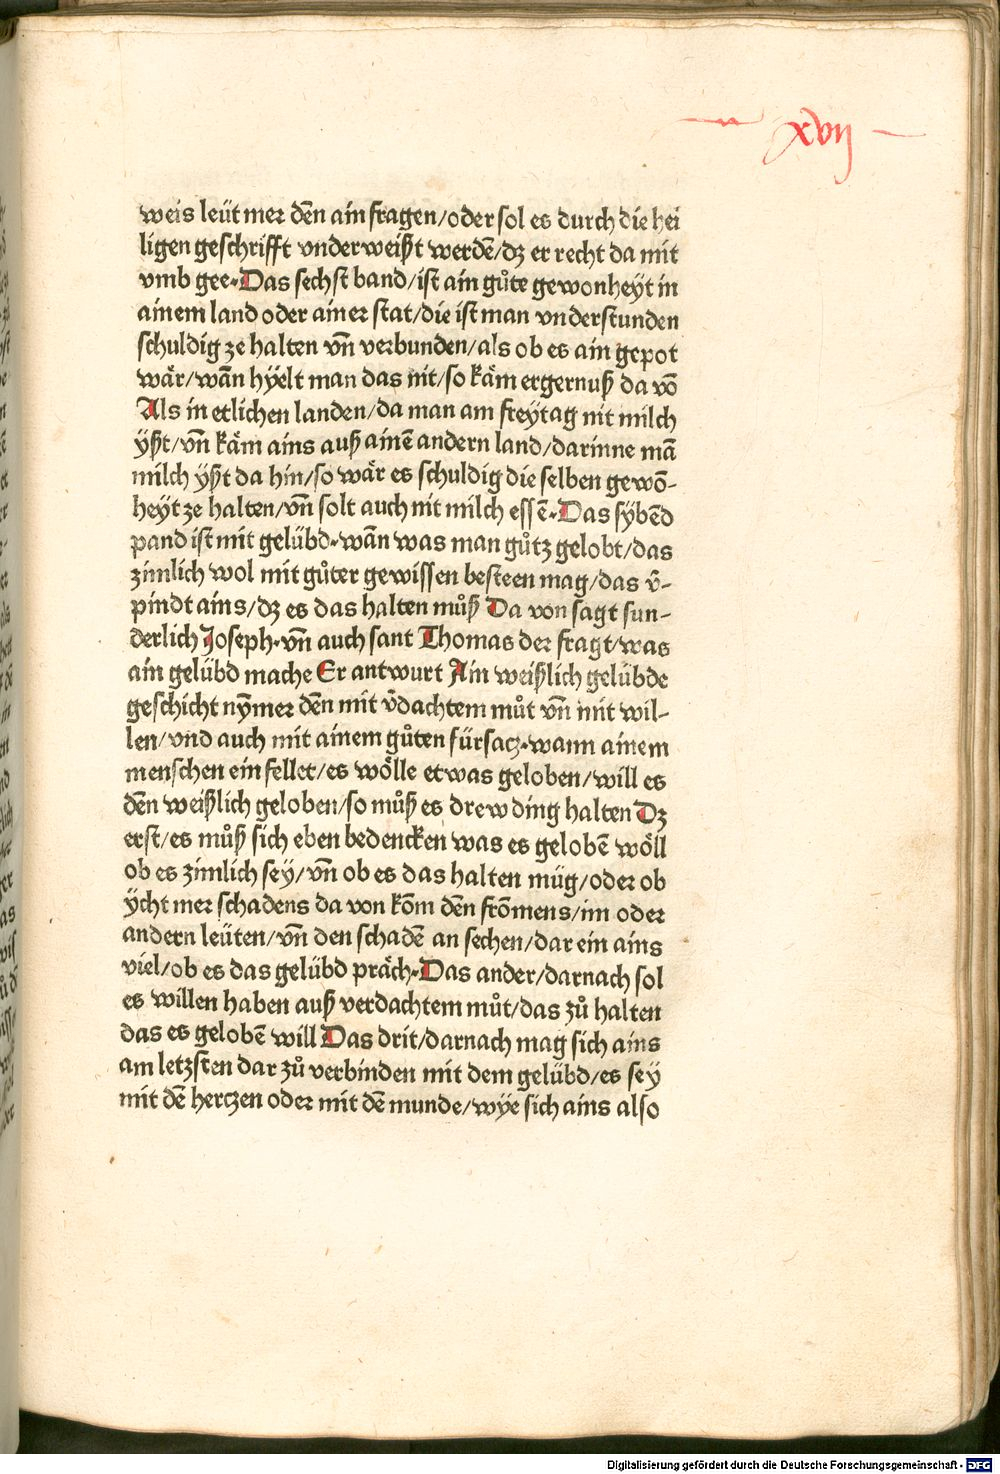 xvij
weis leüt mer deñ ain fragen/oder sol es durch die hei
ligen geschrifft vnderweißt werdẽ/dz er recht da mit
vmb gee. Das sechst band/ist ain gůte gewonheyt in
ainem land oder ainer stat/die ist man vnderstunden
schuldig ze halten vñ verbunden/als ob es ain gepot
wär/wañ hyelt man das nit/so käm ergernuß da võ
Als in etlichen landen/da man am freytag nit milch
ÿßt/vñ käm ains auß ainẽ andern land/darinne mã
milch yßt da hin/so wär es schuldig die selben gewõ-
heyt ze halten/vñ solt auch nit milch essẽ. Das sÿbẽd
pand ist mit gelübd. wañ was man gůtz gelobt/das
zimlich wol mit gůter gewissen besteen mag/das v̄-
pindt ains/dz es das halten můß Da von sagt sun-
derlich Joseph. vñ auch sant Thomas der fragt/was
ain gelübd mache Er antwurt Ain weißlich gelübde
geschicht nym̄er deñ mit v̄dachtem můt vñ mit wil-
len/vnd auch mit ainem gůten fürsatz. wann ainem
menschen ein fellet/es wölle etwas geloben/will es
deñ weißlich geloben/so můß es drew ding halten Dz
erst/es můß sich eben bedencken was es gelobẽ wöll
ob es zimlich sey/vñ ob es das halten müg/oder ob
ÿcht mer schadens da von kom̄ deñ from̄ens/im oder
andern leüten/vñ den schadẽ an sechen/dar ein ains
viel/ob es das gelübd präch. Das ander/darnach sol
es willen haben auß verdachtem můt/das zů halten
das es gelobẽ will Das drit/darnach mag sich ains
am letzsten dar zů verbinden mit dem gelübd/es sey
mit dẽ hertzen oder mit dẽ munde/wÿe sich ains also
Digitalisierung gefördert durch die Deutsche Forschungsgemeinschaft - DFG